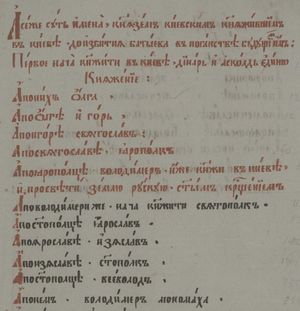 А се же суть имена · кнѧземъ киевским кнѧживши҄м
в киевѣ · до избитьѧ батыева в поганствѣ будущи҄м :
Первое нача кнѧжити в киевѣ · динаръ и асколдъ едино
Кнѧжение :
А по них · ѡлга ·
А по ѡлгѣ · игорь ·
А по игорѣ · свѧтославъ ·
А по свѧтославѣ · ѩрополкъ ·
А по ѩрополкѣ · володимеръ · иже кнѧжи в киевѣ ·
и просвѣти землю рѹскую ст҃ым крещением
А по володимери же · нача кнѧжити свѧтополкъ ·
А по ст҃ополцѣ · ѩрославъ ·
А по ѩрославѣ · изѧславъ ·
А по изѧславѣ · ст҃ополкъ ·
А по ст҃ополцѣ · всеволодъ ·
А по немъ · володимеръ · мономаха ·